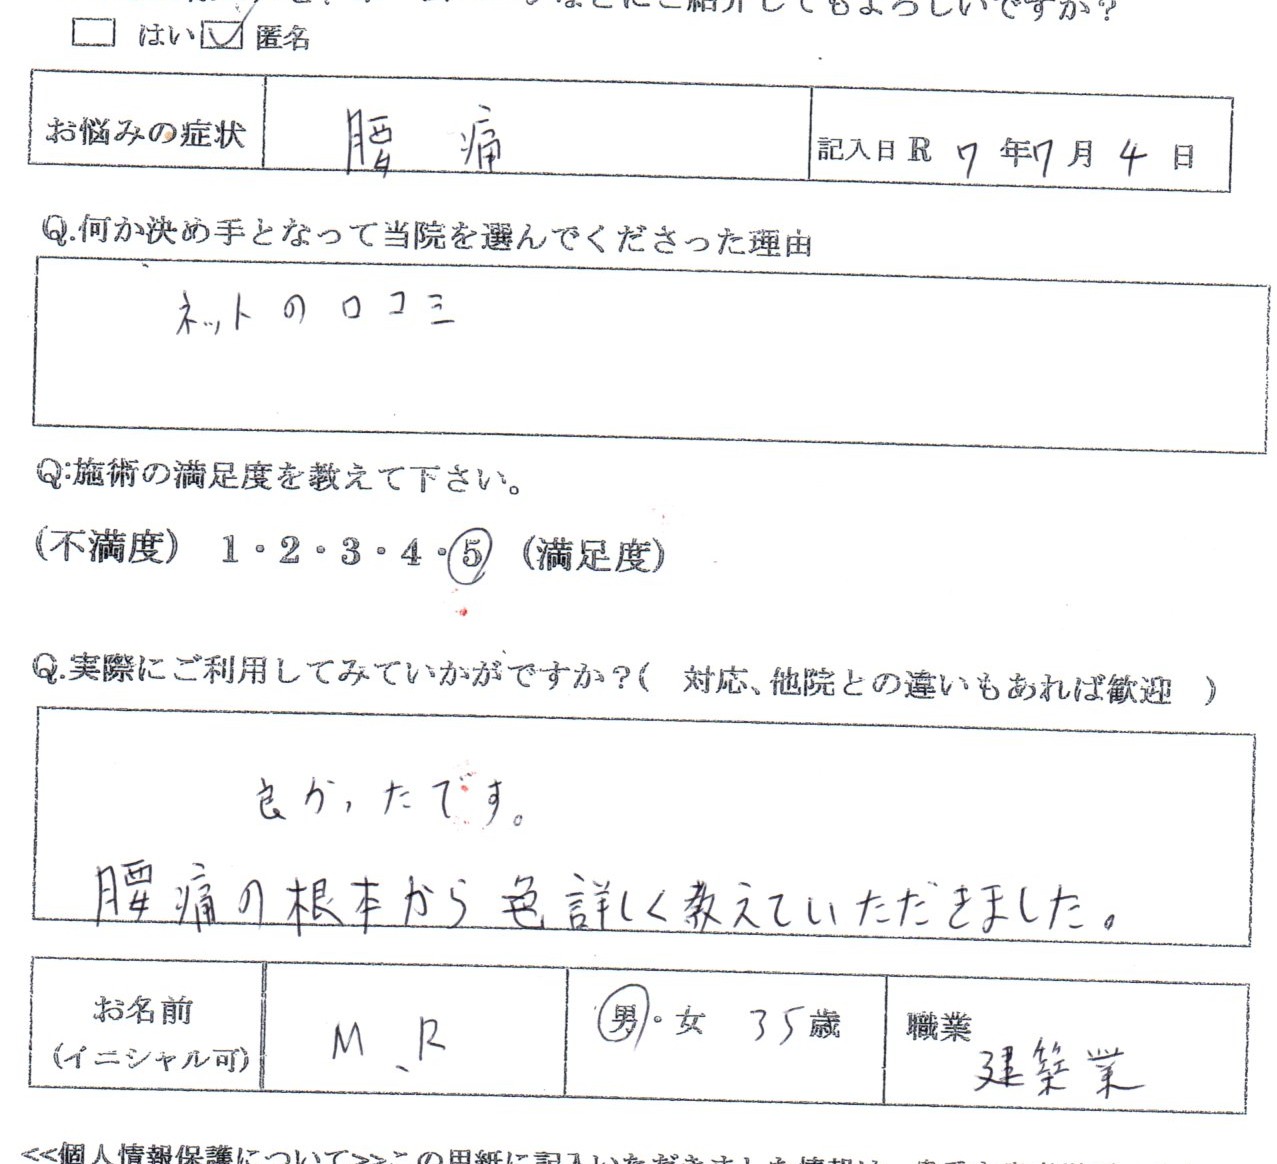 ご紹介してもよろしいですか？
はい 匿名
お悩みの症状 腰痛 記入日 R 7 年 7 月 4 日
Q.何か決め手となって当院を選んでくださった理由
ネットの口コミ
Q:施術の満足度を教えて下さい。
(不満度) 1・2・3・4・5 (満足度)
Q.実際にご利用してみていかがですか？( 対応、他院との違いもあれば歓迎 )
良かったです。
腰痛の根本から色詳しく教えていただきました。
お名前 (イニシャル可) M.R 男・女 35歳 職業 建築業
<<個人情報保護について>>この用紙に記入いただきました情報は、